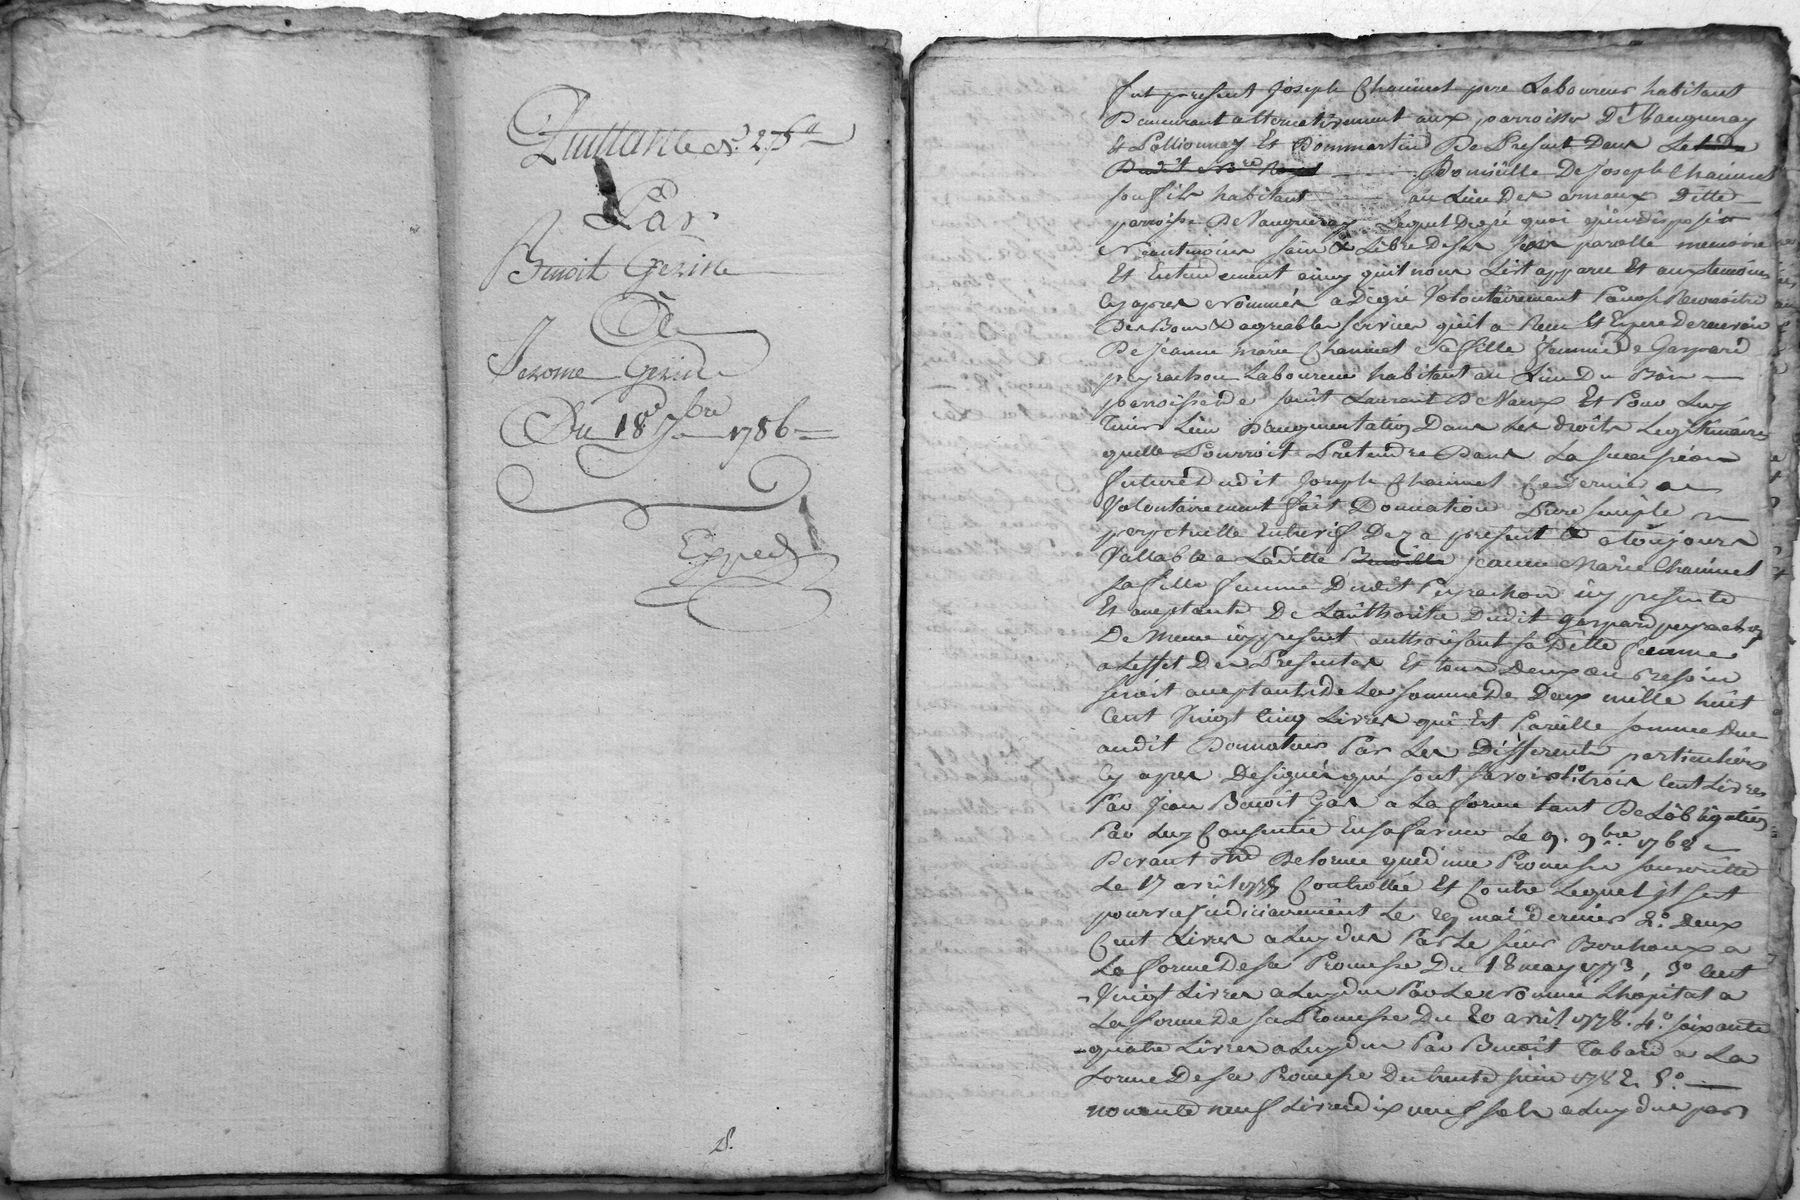 Quittance de 275#
Par
Benoit Gerin
à
Jerome Gerin
Du 18 7bre 1786
Exped
Fut present Joseph Chainiet pere Laboureur habitant
Demeurant alternativement aux parroisses De Vaugneray
Et Pollionnay Et Dommartin De Present Dans
Domicille De Joseph Chainiet
son fils habitant au Lieu Des arnaux Ditte
parroisse De Vaugneray Lequel De gré quoi qu'indisposé
Neantmoins sain & Libre De ses sens parolle memoire
Et Entendement ainsy qu'il nous L'est apparu Et aux temoins
cy apres nommés a De gré Volontairement
Des Bons & agreables services qu'il a Reçu Et Espere De recevoir
De jeanne marie Chainiet Sa fille femme De Gaspard
peyrachon Laboureur habitant au Lieu Du
parroisse de saint Laurent De Vaux Et Pour Luy
tenir Lieu D'augmentation Dans Les droits Legitimaires
quelle Pourroit Pretendre Dans La succession
future Dudit Joseph Chainiet Ce Dernier a
Volontairement fait Donnation Pure simple
perpetuelle Entrevif Dez a present & a toujours
Vallable a Laditte jeanne Marie Chainiet
sa fille femme Dudit Peyrachon icy presente
Et acceptante De L'authorité Dudit gaspard peyrachon
De meme icy present authorisant sa Ditte femme
a L'effet Des Presentes Et tous Deux au Besoin
seroit acceptants De La somme De Deux mille huit
Cent Vingt Cinq Livres qui Est Pareille somme Due
audit Donnateur Par Les Differents particuliers
Cy apres Designés qui sont savoir 1° trois Cent Livres
Par Jean Benoit Gas a La forme tant De L'obligation
Par Luy Consentie En sa faveur Le 9. 9bre 1768
Devant Me Delorme que d'une Promesse sousscritte
Le 17 avril Controllée Et Contre Lequel il s'est
pourvu judiciairement Le 29 mai dernier 2° Deux
Cent Livres a Luy Dus Par Le sieur Bonhoux a
La forme De sa Promesse Du 18 may 1773, 3° Cent
Vingt Livres a Luy Dus Par Le nommé L'hopital a
La forme De sa Promesse Du 20 avril 1778. 4° soixante
quatre Livres a Luy Dus Par Benoit Tabard a La
forme De sa Promesse Du trente juin 1782. 5°
nonante neuf Livres dix neuf sols a Luy dus par